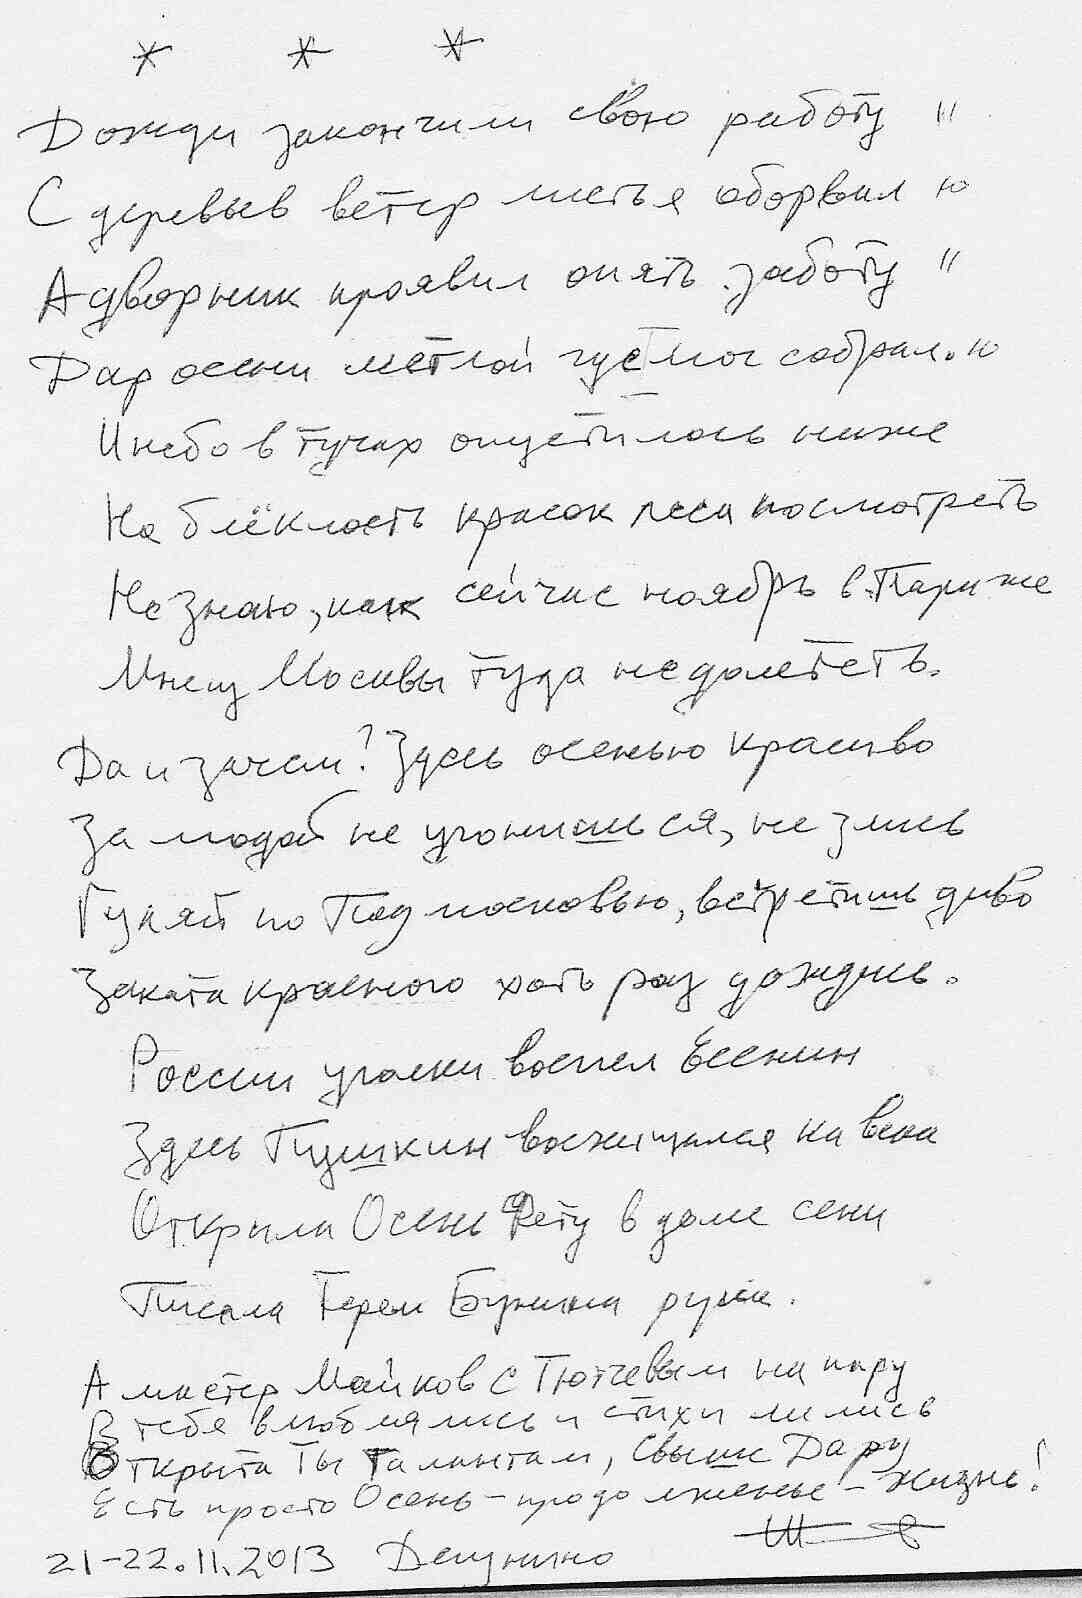 * * *
Дожди закончили свою работу "
С деревьев ветер листья оборвал ю
А дворник проявил опять заботу "
Дар осени метлой густою собрал. ю
И небо в тучах опустилось ниже
На блёклость красок леса посмотреть
Не знаю, как сейчас ноябрь в Париже
Мне из Москвы туда не долететь.
Да и зачем? Здесь осенью красиво
За модой не угонишься, не злись
Гуляй по Подмосковью, встретишь диво
Заката красного хоть раз дождись.
России уголки воспел Есенин
Здесь Пушкин восхищался на века
Открыла Осень Фету в доме сени
Писала Терем Бунина рука.
А мастер Майков с Тютчевым на пару
В тебя влюблялись и стихи лились
Открыта Ты Талантам, Свыше Дару
Есть просто Осень - продолженье - Жизнь!
21-22.11.2013 Дегунино